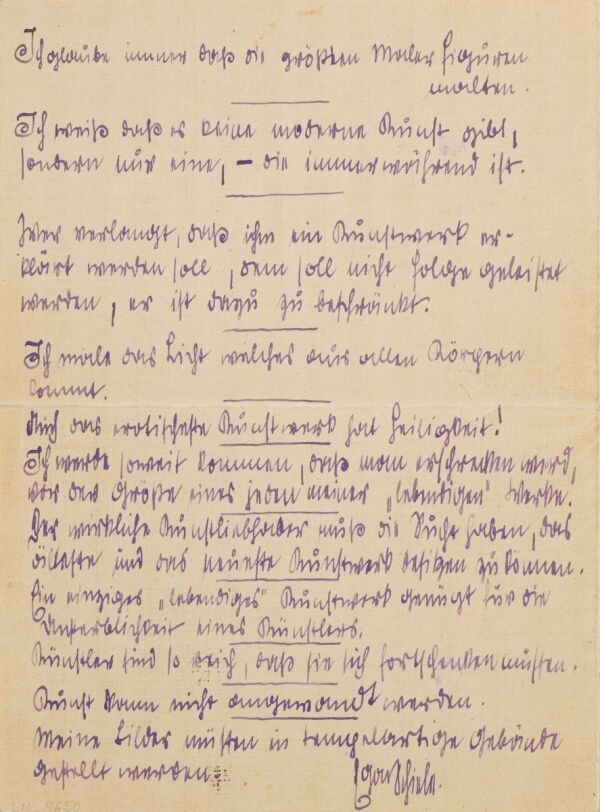 Ich glaube immer daß die größten Maler Figuren
malten.
Ich weiß daß es keine moderne Kunst gibt,
sondern nur eine, – die immerwährend ist.
Wer verlangt, daß ihm ein Kunstwerk er-
klärt werden soll, dem soll nicht folge geleistet
werden, er ist dazu zu beschränkt.
Ich male das Licht welches aus allen Körpern
kommt.
Auch das erotischeste Kunstwerk hat Heiligkeit!
Ich werde soweit kommen, daß man erschrecken werd,
vor der Größe eines jeden meiner „lebendigen" Werke.
Der wirkliche Kunstliebhaber muß die Sucht haben, das
älteste und das neueste Kunstwerk besitzen zu können.
Ein einziges „lebendiges" Kunstwerk genügt für die
Unsterblichkeit eines Künstlers.
Künstler sind so reich, daß sie sich fortschenken müssen.
Kunst kann nicht angewandt werden.
Meine Bilder müssen in tempelartige Gebäude
gestellt werden.
Egon Schiele.